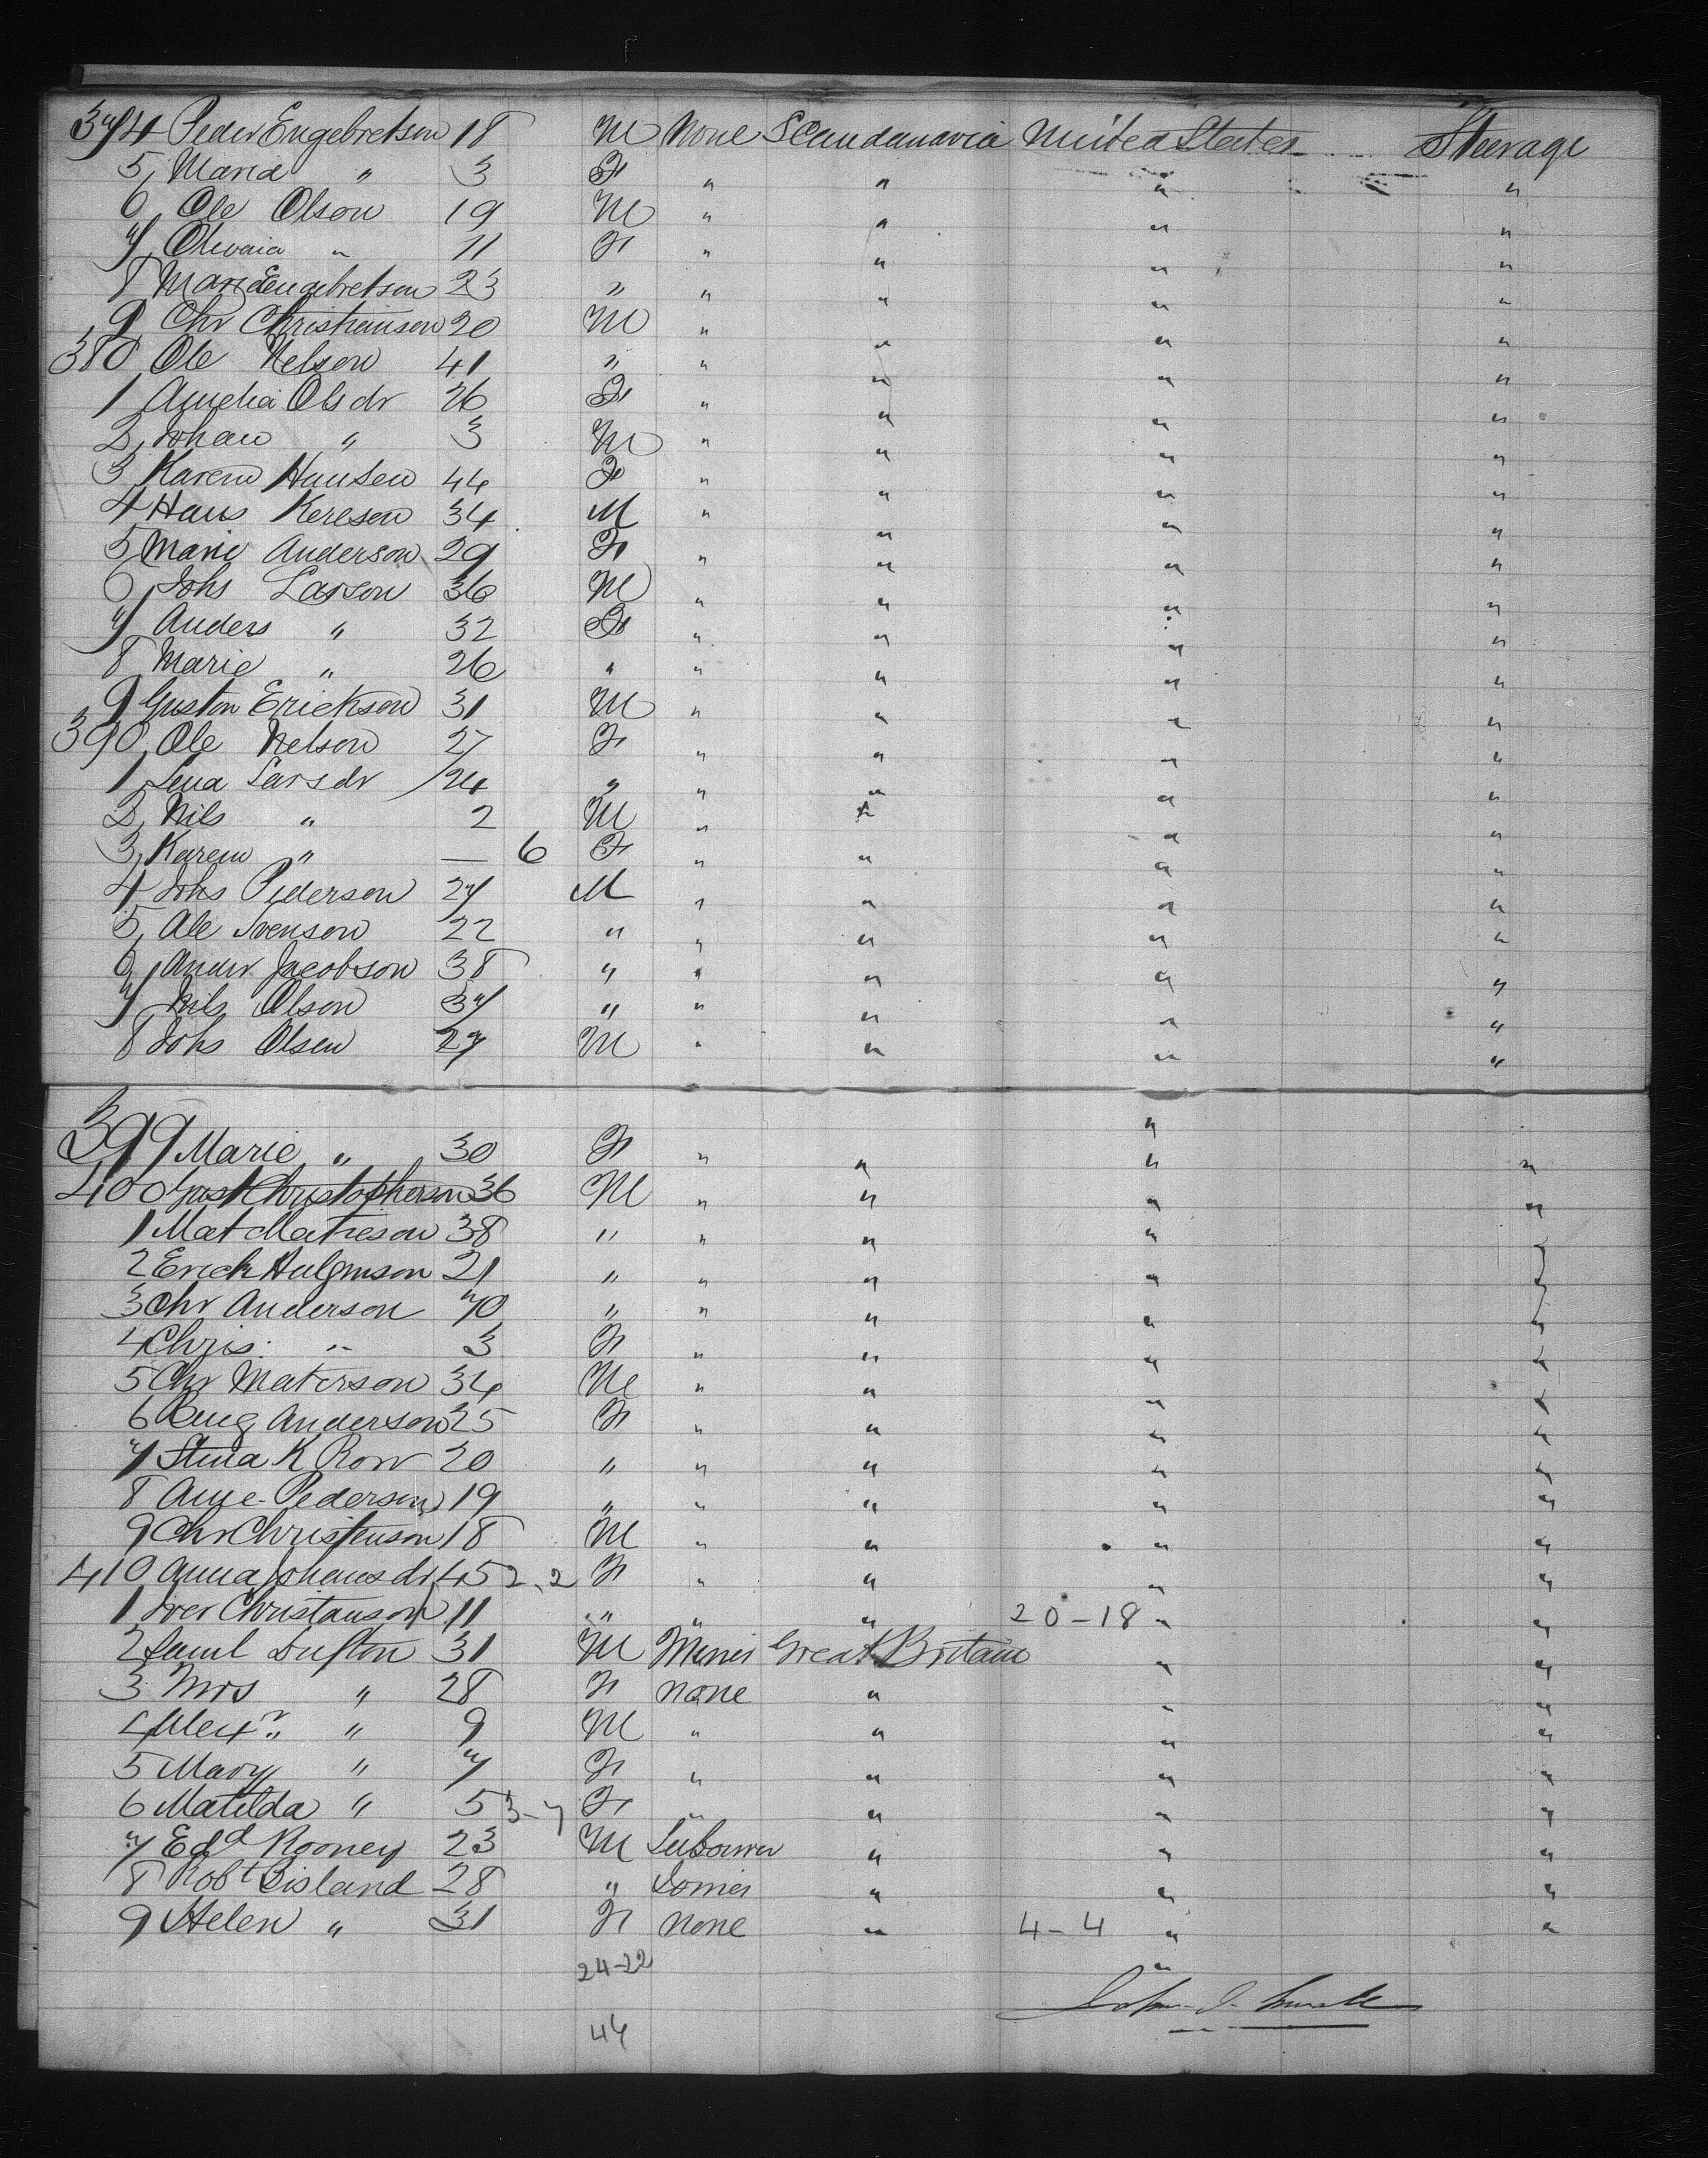 374 Peder Engebretson 18 M None Scandanavia United States Steerage
5 Maria " 3 F " " " "
6 Ole Olson 19 M " " " "
7 " 11 F " " " "
8 Mari Engebretson 23 " " " " "
9 Chr Christianson 20 M " " " "
380 Ole Nelson 41 " " " " "
1 Amelia Olsdr 26 F " " " "
2 Johan " 3 M " " " "
3 Karen Hansen 44 F " " " "
4 Hans Kereson 34 M " " " "
5 Marie Anderson 29 F " " " "
6 Johs Larson 36 M " " " "
7 Anders " 32 F " " " "
8 Marie " 26 " " " " "
9 Guston Erickson 31 M " " " "
390 Ole Nelson 27 F " " " "
1 Lena Larsdr 24 " " " " "
2 Nils " 2 M " " " "
3 Karen " — 6 F " " " "
4 Johs Pederson 27 M " " " "
5 Ole Svenson 22 " " " " "
6 Ander Jacobson 38 " " " " "
7 Nils Olson 37 " " " " "
8 Johs Olsen 27 M " " " "
399 Marie " 30 F " " " "
400 Gust Christopherson 36 M " " " "
1 Mat Matheson 38 " " " " "
2 Erick 21 " " " " "
3 Chr Anderson 70 " " " " "
4 Chris: " 3 F " " " "
5 Chr Materson 34 M " " " "
6 Anderson 25 F " " " "
7 Stina K Row 20 " " " " "
8 Ane Pederson 19 " " " " "
9 Chr Christenson 18 M " " " "
410 Anna Johansdr 45 2.2 F " " " "
1 Iver Christanson 11 " " " 20-18 " "
2 Saml Dufton 31 M Miner Great Britain " "
3 Mrs " 28 F none " " "
4 Alexr " 9 M " " " "
5 Mary " 7 F " " " "
6 Matilda " 5 3-7 F " " " "
7 Edd Rooney 23 M Labourer " " "
8 Robt Bisland 28 " " " "
9 Helen " 31 F none " 4-4 " "
24-22
44